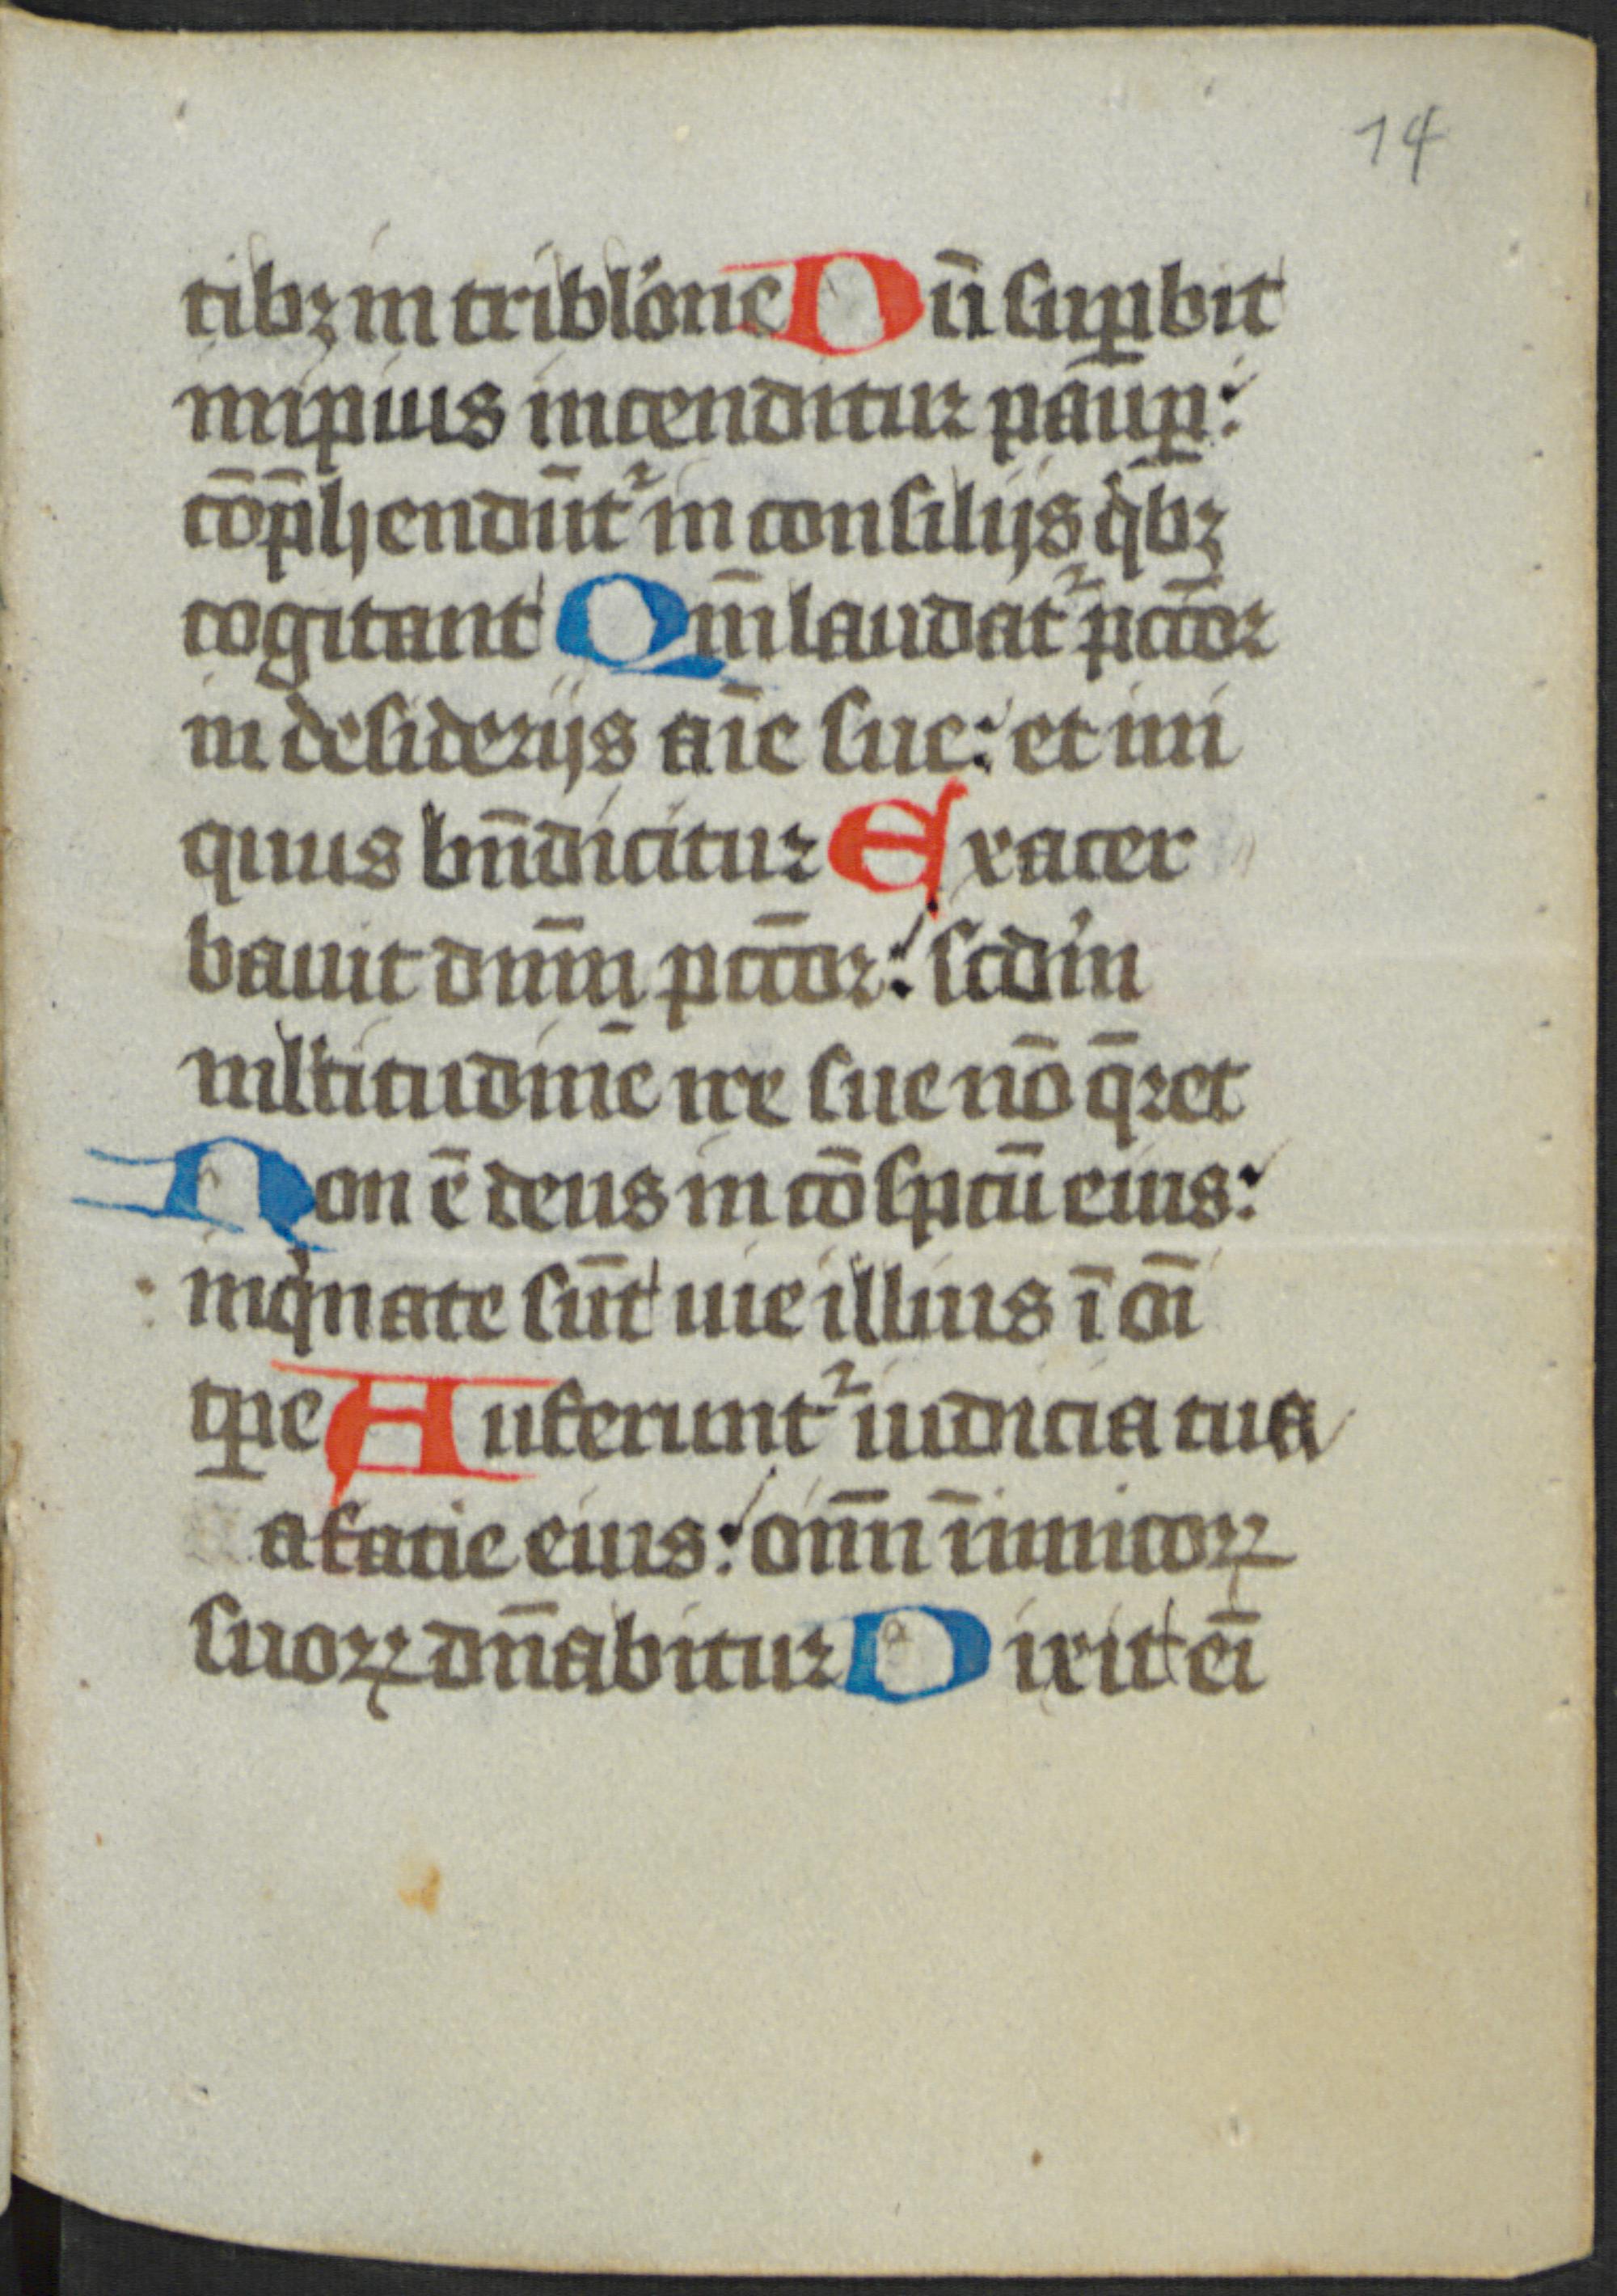 14
tibꝫ in tribl'one Dū suꝑbit
impius incenditur pauꝑ:
cōp̄hendūtᷣ in consilijs qⁱbꝫ
cogitant Qm̄ laudatᷣ pctōr
in desiderijs aīe sue: et ini
quus bn̄dicitur Exacer
bauit dnm̄ pctōr: scd'm
ml'titudinē ire sue nō q̄ret
Non ē deus in cōspcū eius:
inqⁱnate sūt uie illius ī oī
tꝑe Auferuntᷣ iudicia tua
a facie eius: omn̄ īimicoꝝ
suoꝝ dn̄abitur Dixit eī